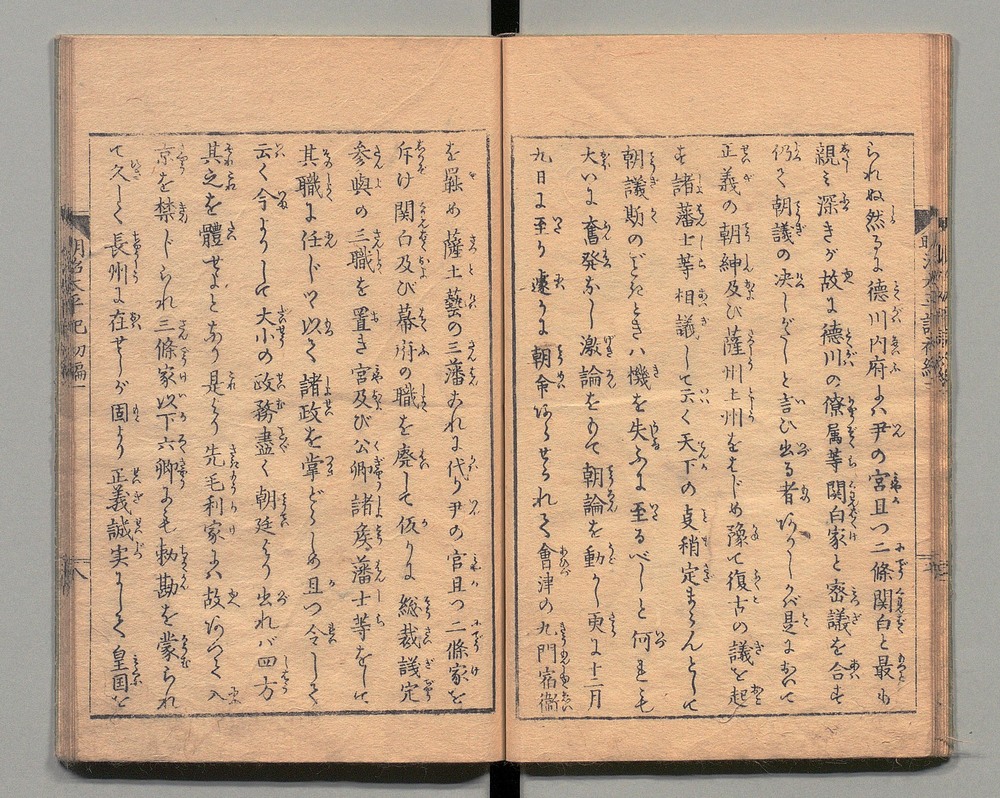 られぬ然るに德川内府よハ尹の宮且つ二條関白と最も
親み深きが故に德川の僚属等関白家と密議を合せ
仍て朝議の決しがたしと言ひ出る者ありしかバ是において
正義の朝紳及び薩州土州をはじめ豫て復古の議を起
せし諸藩士等相議して云く天下の貞稍定まらんとして
朝議斯のごときハ機を失ふに至るべしと何れも
大いに奮発なし激論をもて朝論を動かし更に十二月
九日に至り遽かに朝命あらせられて會津の九門宿衛
を罷め薩土藝の三藩これに代り尹の宮且つ二條家を
斥け関白及び幕府の職を廃して仮りに総裁議定
参與の三職を置き宮及び公卿諸矦藩士等をして
其職に任じ以て諸政を掌どらしめ且つ令して
云く今よりして大小の政務盡く朝廷より出れバ四方
其之を體せよとあり是より先毛利家にハ故あつて入
京を禁じられ三條家以下六卿にも勅勘を蒙られ
て久しく長州に在せしが固より正義誠実にして皇国を
明治太平記初編一
八